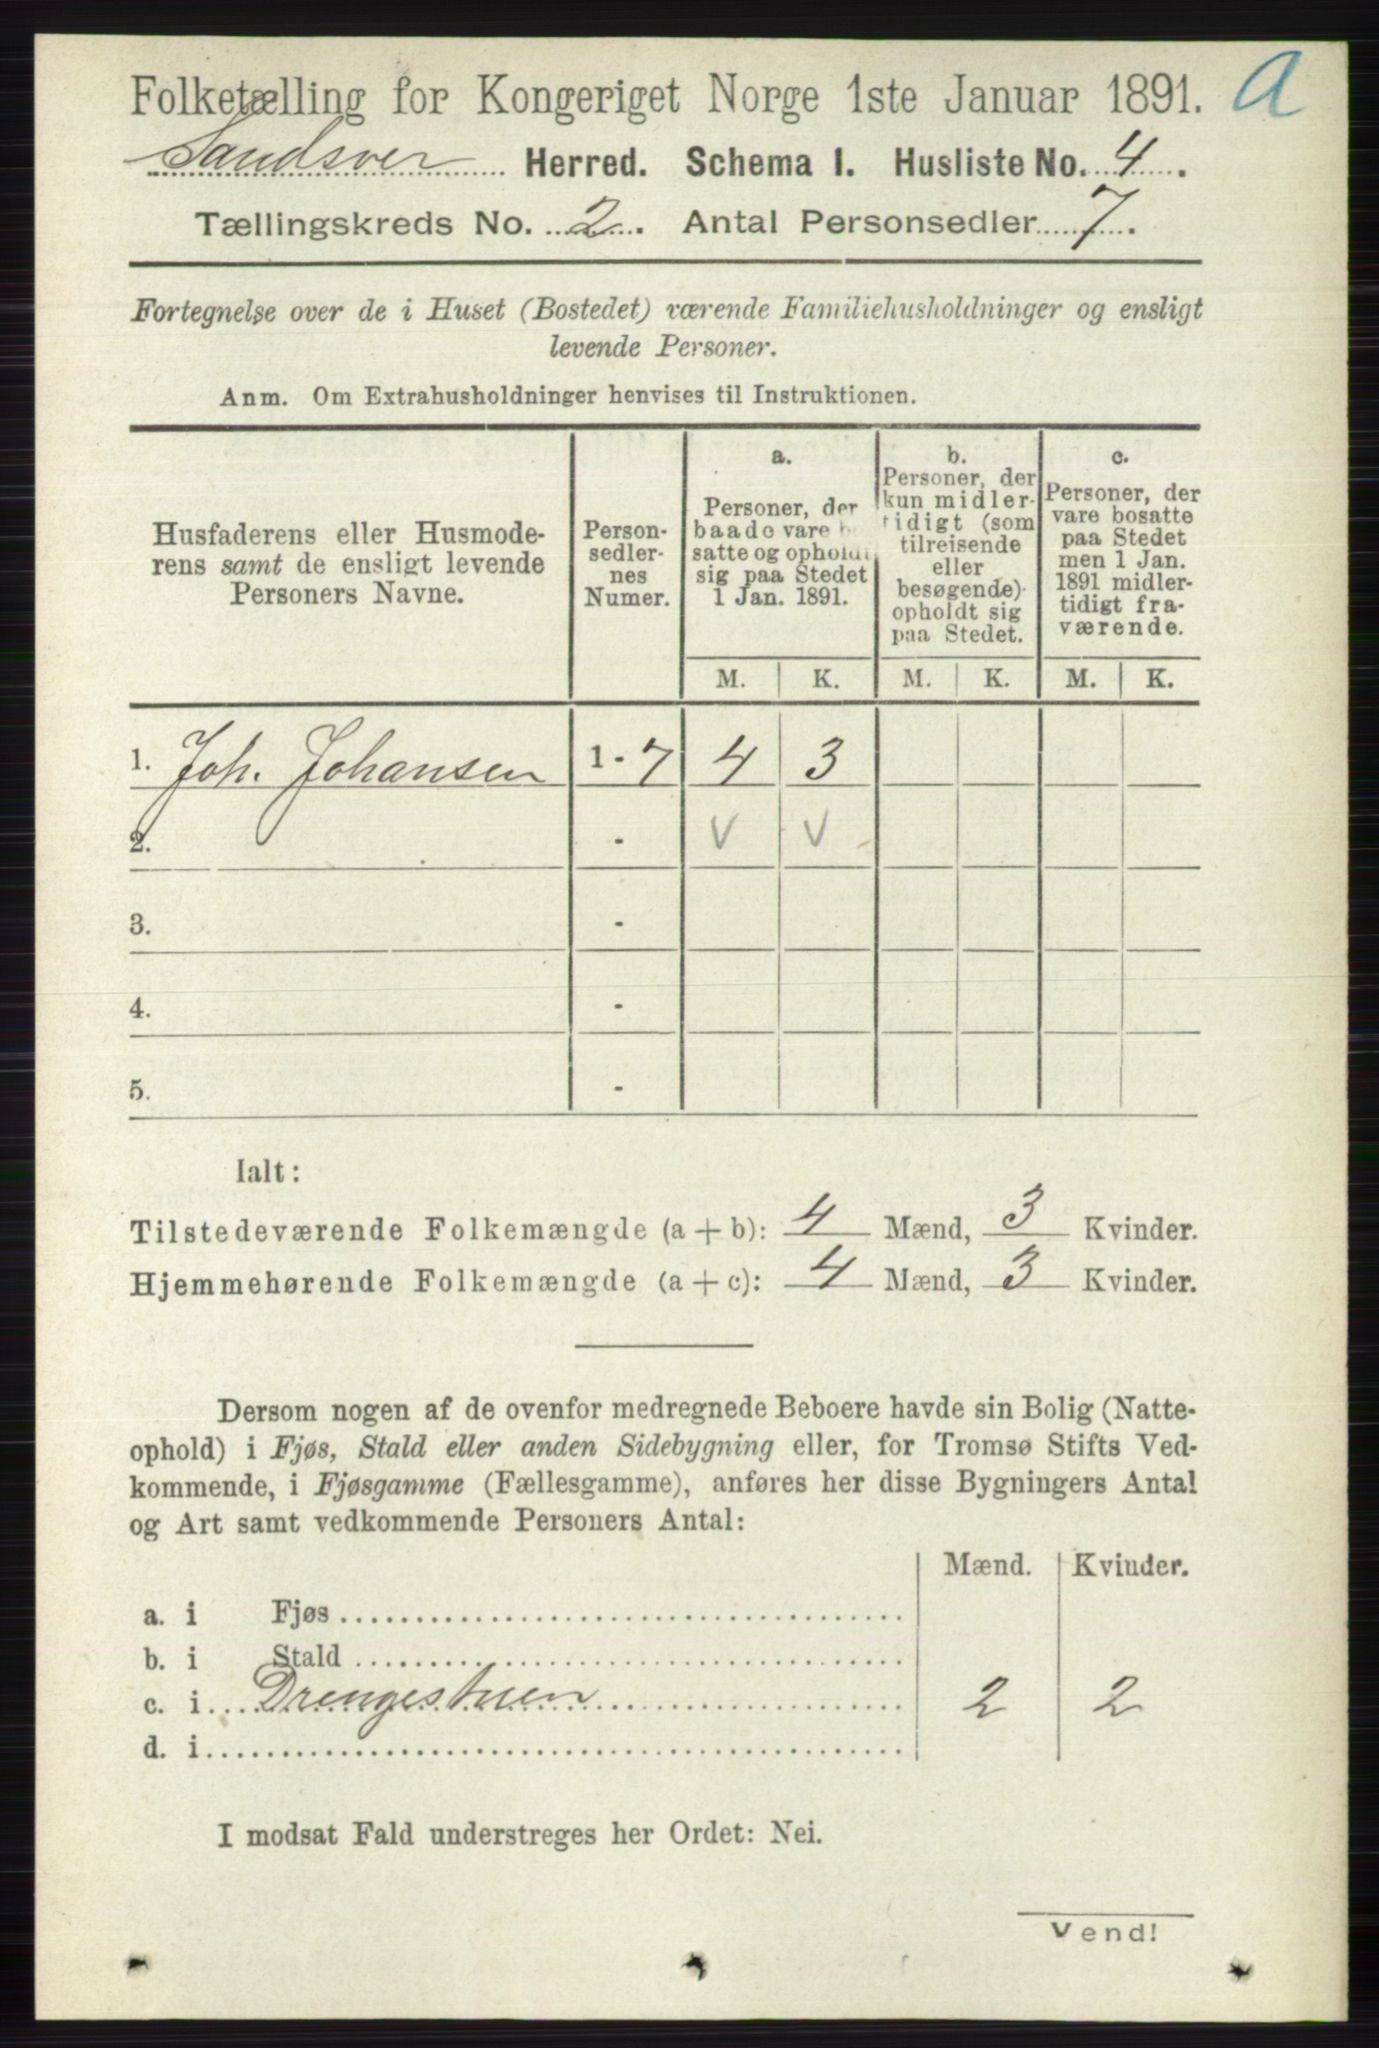 Folketælling for Kongeriget Norge 1ste Januar 1891. a
Sandsver Herred. Schema 1. Husliste No. 4.
Tællingskreds No. 2. Antal Personsedler 7.
Fortegnelse over de i Huset (Bostedet) værende Familiehusholdninger og ensligt
levende Personer.
Anm. Om Extrahusholdninger henvises til Instruktionen.
Husfaderens eller Husmode-
rens samt de ensligt levende
Personers Navne.
Person-
sedler-
nes
Numer.
a.
Personer, der
baade vare bo
satte og opholdt
sig paa Stedet
1 Jan. 1891.
b.
Personer, der
kun midler-
tidigt (som
tilreisende
eller
besøgende)
opholdt sig
paa Stedet.
c.
Personer, der
vare bosatte
paa Stedet
men 1 Jan.
1891 midler-
tidigt fra-
værende.
M. K. M. K. M. K.
1. Joh. Johansen 1 - 7 4 3
2. - V V
3. -
4. -
5. -
Ialt:
Tilstedeværende Folkemængde (a + b): 4 Mænd, 3 Kvinder.
Hjemmehørende Folkemængde (a + c): 4 Mænd, 3 Kvinder.
Dersom nogen af de ovenfor medregnede Beboere havde sin Bolig (Natte-
ophold) i Fjøs, Stald eller anden Sidebygning eller, for Tromsø Stifts Ved-
kommende, i Fjøsgamme (Fællesgamme), anføres her disse Bygningers Antal
og Art samt vedkommende Personers Antal:
Mænd. Kvinder.
a. i Fjøs
b. i Stald
c. i Drengestuen 2 2
d. i
I modsat Fald understreges her Ordet: Nei.
Vend!